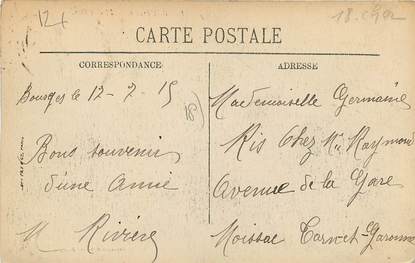 12f
18. Cher
CARTE POSTALE
CORRESPONDANCE
ADRESSE
Bourges le 12-7-15
Bons souvenirs
d'une amie
M Rivière
Mademoiselle Germaine
Ris Chez Mr Raymond
Avenue de la Gare
Moissac Tarn-et-Garonne